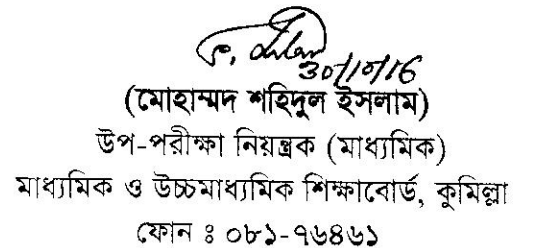 30/10/16
(মোহাম্মদ শহিদুল ইসলাম)
উপ-পরীক্ষা নিয়ন্ত্রক (মাধ্যমিক)
মাধ্যমিক ও উচ্চমাধ্যমিক শিক্ষাবোর্ড, কুমিল্লা
ফোন ঃ ০৮১-৭৬৪৬১